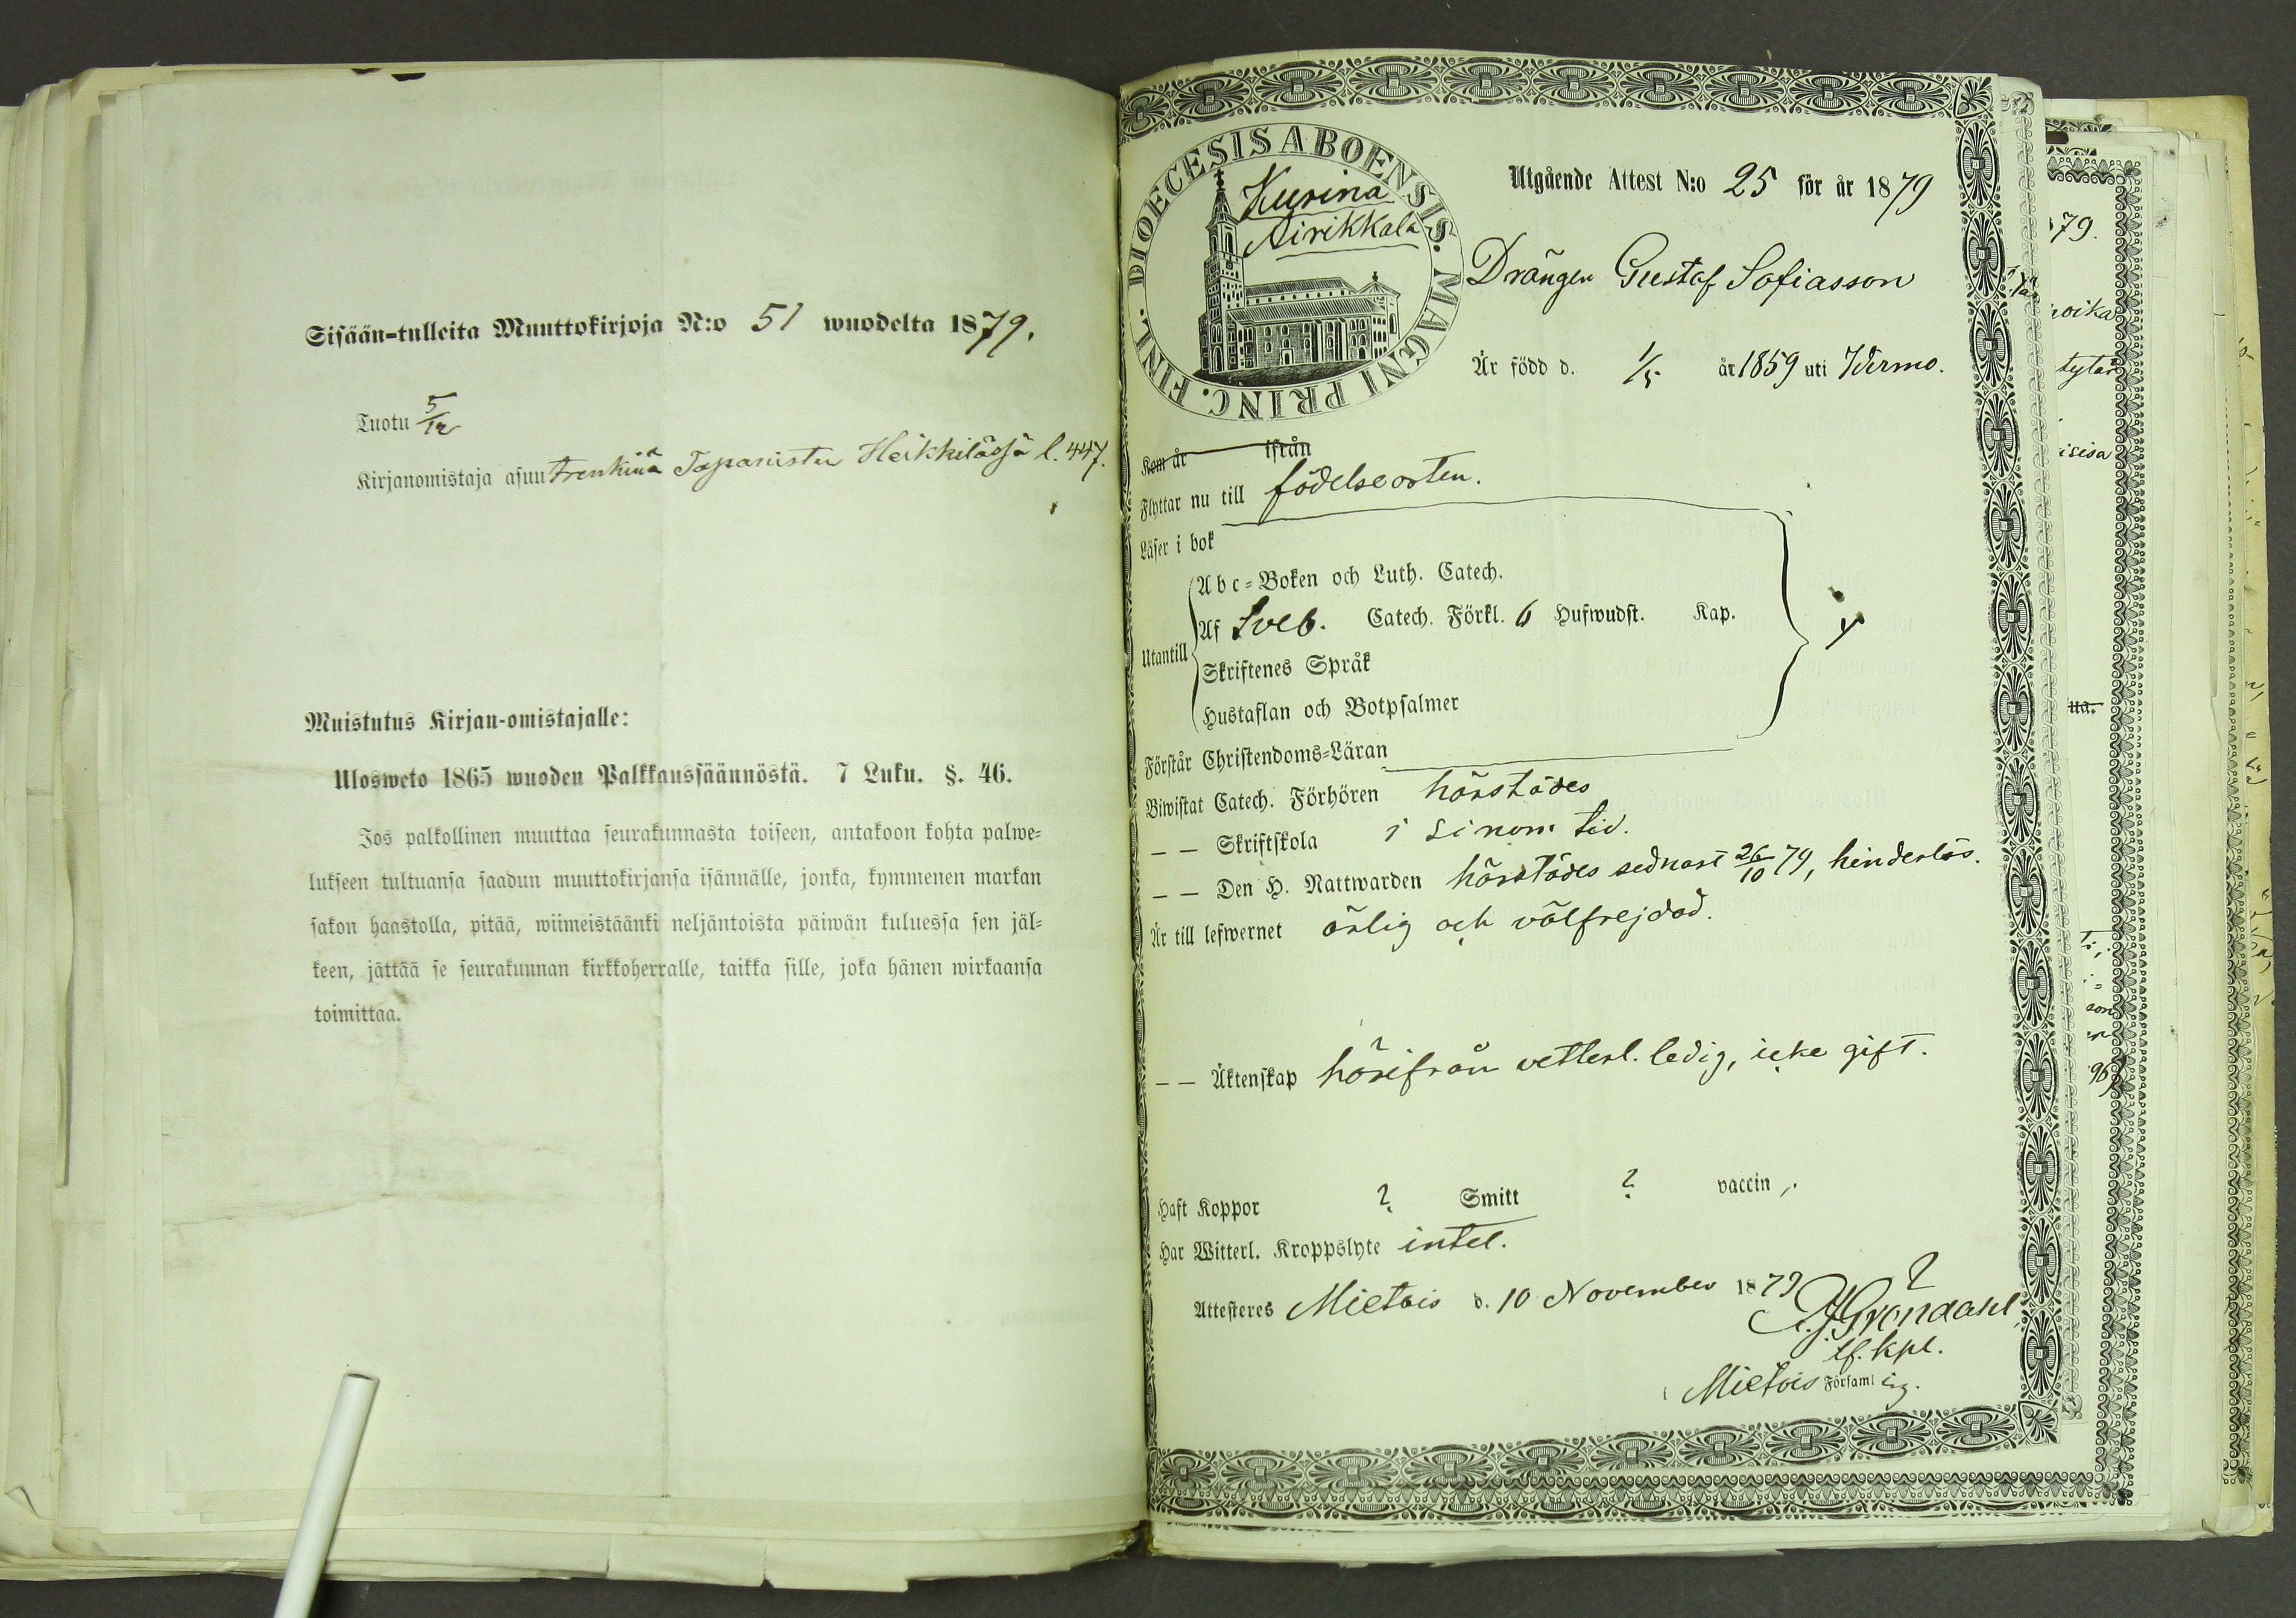 Sisään-tulleita Muuttokirjoja N:o 51 wuodelta 1879.
Tuotu 5/12
Kirjanomistaja asuu trenkinä Tapanisten Heikkilässä l. 447.
Muistutus Kirjan-omistajalle:
Ulosweto 1865 wuoden Palkkaussäännöstä. 7 Luku. §. 46.
Jos palkollinen muuttaa seurakunnasta toiseen, antakoon kohta palwe=
lukseen tultuansa saadun muuttokirjansa isännälle, jonka, kymmenen markan
sakon haastolla, pitää, wiimeistäänki neljäntoista päiwän kuluessa sen jäl=
keen, jättää se seurakunnan kirkkoherralle, taikka sille, joka hänen wirkaansa
toimittaa.
DIOECESIS ABOENSIS. MAGNI PRINC. FINL.
Kursina
Airikkala
Utgående Attest N:o 25 för år 1879
Drängen Gustaf Sofiasson
Är född d. 1/5 år 1859 uti Wirmo.
Kom år ifrån
Flyttar nu till födelseorten.
Läser i bok
Abc=Boken och Luth. Catech.
Utantill Af Sveb. Catech. Förkl. 6 Hufwudst. Kap.
Skriftenes Språk
Hustaflan och Botpsalmer
Förstår Christendoms=Läran
Biwistat Catech. Förhören härstädes
— — Skriftskola i sinom tid.
— — Den H. Nattwarden härstädes sednast 26/10 79, hinderlös.
Är till lefwernet ärlig och välfrejdad.
— — Äktenskap härifrån vetterl. ledig, icke gift.
Haft Koppor ? Smitt ? vaccin ,.
Har Witterl. Kroppslyte intet.
Attesteres Mietois d. 10 November 1879
A. J. Grönda​hl,
tf. kpl.
i Mietois Församling.
79.